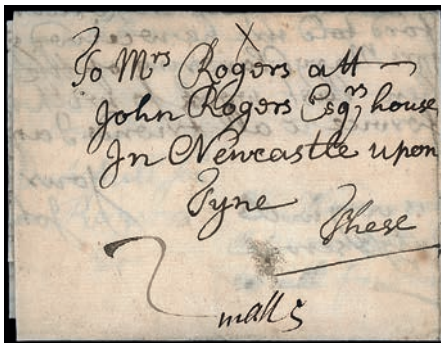 To Mrs Rogers att
John Rogers Esqrs house
In Newcastle upon
Tyne
These
2